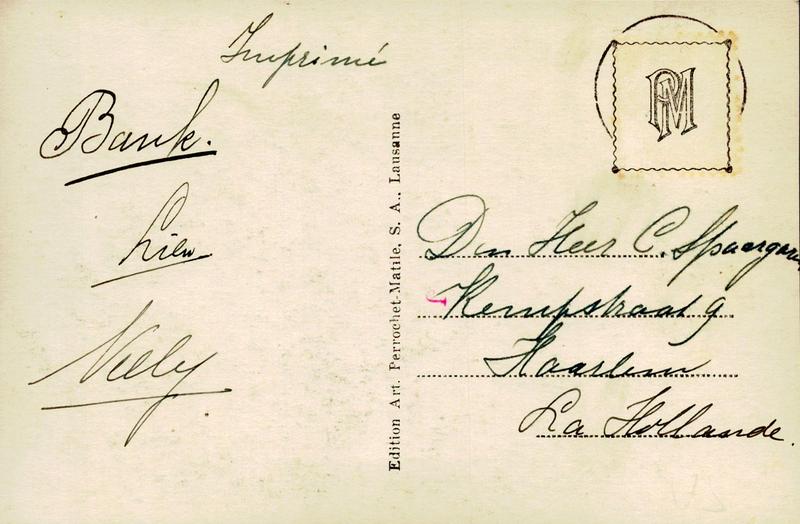 Imprimé
Bank.
Lien
Nelly
Edition Art. Perrochet-Matile, S. A., Lausanne
PM
Den Heer C. Spaargaren
Kempstraat 9
Haarlem
La Hollande.